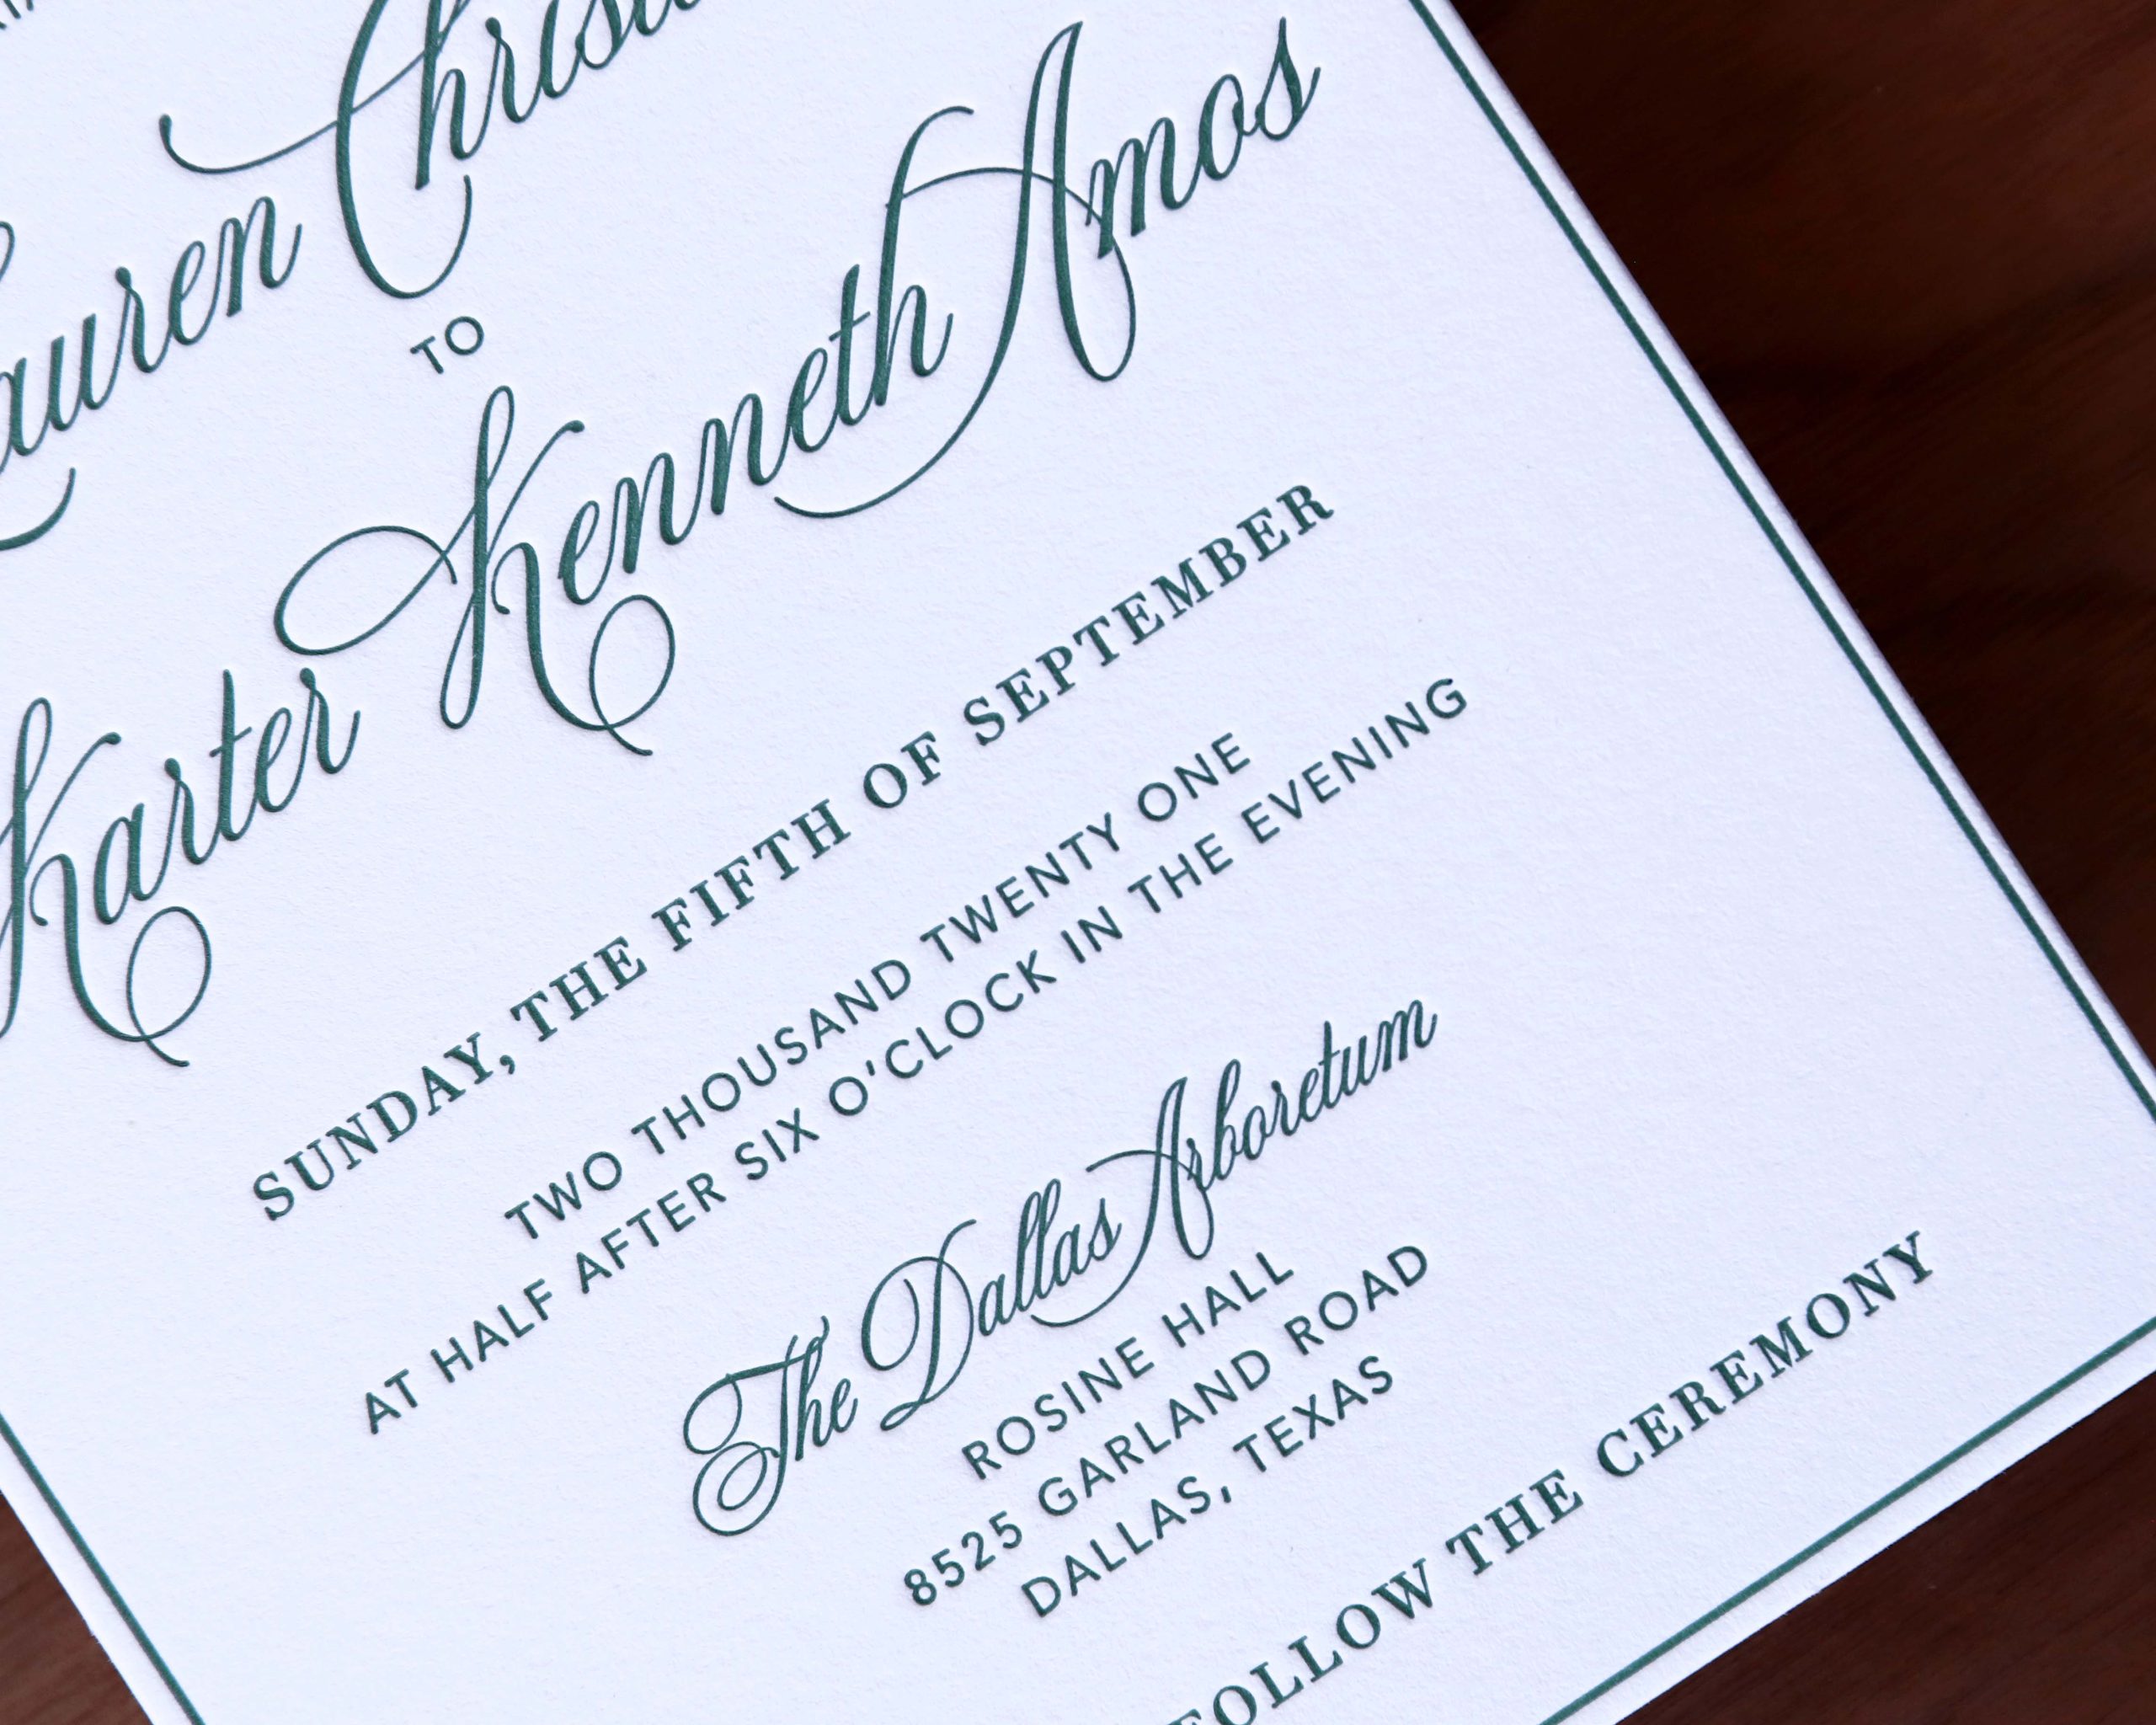 TO
Karter Kenneth Amos
SUNDAY, THE FIFTH OF SEPTEMBER
TWO THOUSAND TWENTY ONE
AT HALF AFTER SIX O'CLOCK IN THE EVENING
The Dallas Arboretum
ROSINE HALL
8525 GARLAND ROAD
DALLAS, TEXAS
FOLLOW THE CEREMONY